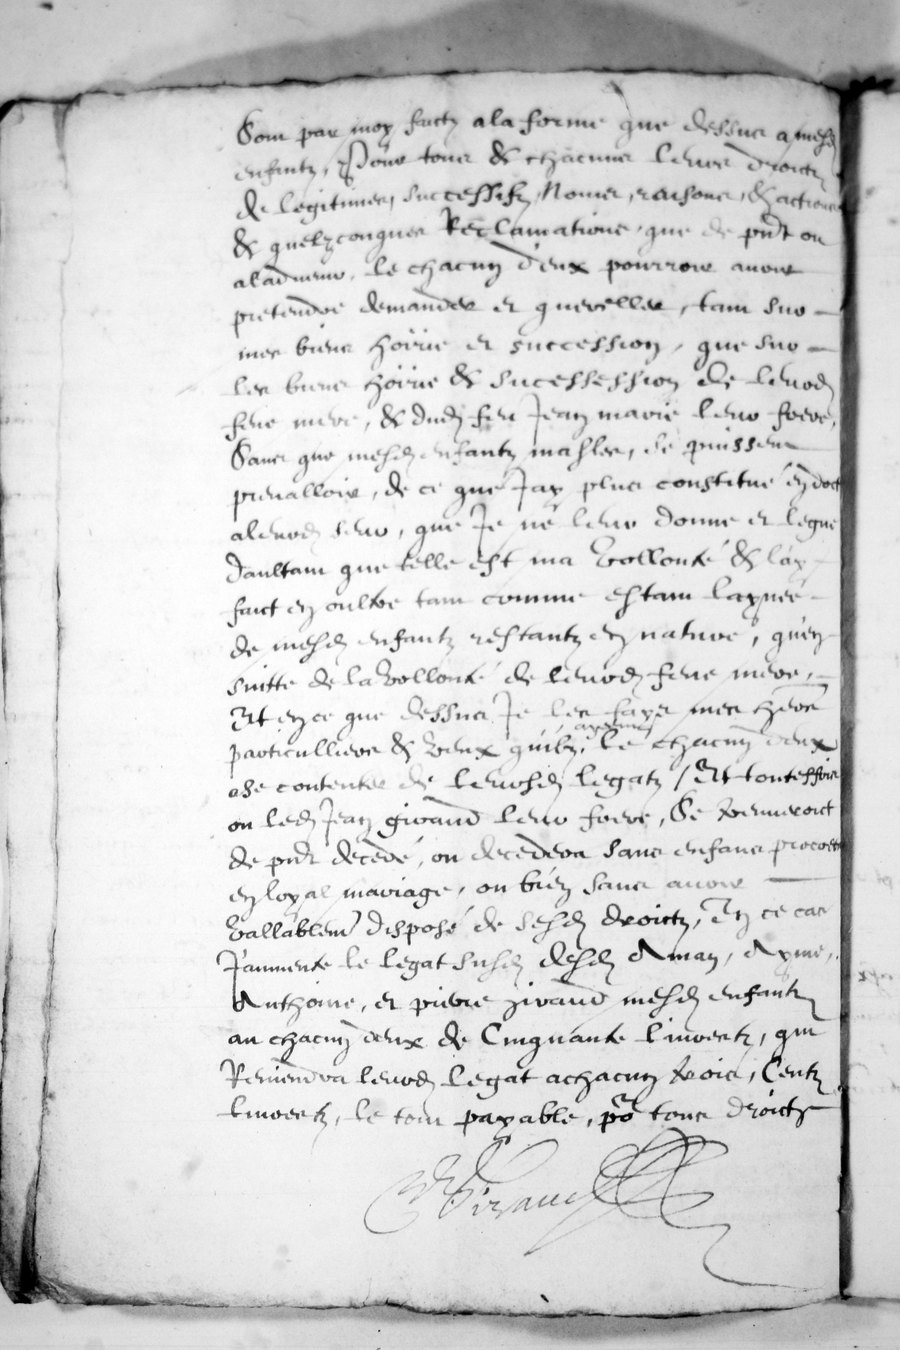 Sont par moy faictz a la forme que dessus a mesd
enfantz, Pour tous & chacuns leurs droictz
de legitimes, successifz, Noms, raisons, & actions
& quelzconques Reclamations, que de pnt ou
aladvenir, le chacun d'eux pourroit avoir
pretendre demander et quereller, tant sur
mes biens hoirie et succession, que sur
les biens hoirie & sucessession de leurd
feue mere, & dud feu Jean marie leur frere,
Sans que mesd enfantz masles, se puissent
prevalloir, de ce que J'ay plus constitué en dot
a leurd seur, que Je ne leur donne et legue
Daultant que telle est ma vollonté & l'ay
faict en oultre tant comme estant l'aynée
de mesd enfantz restantz en nature, qu'en
suitte de la vollonté de leurd feue mere,
Et en ce que dessus Je les fays mes hers
particulliers & veux quilz, le chacun deux
a se contenter de leursd legatz / Et toutesfois
ou led Jean giraud leur frere, Se treuveroit
de pnt decedé, ou decedera sans enfans procreés
en loyal mariage, ou bien sans avoir
vallablemt disposé de sesd droictz, En ce cas
J'aumente le legat susd desd Aman, Ayme,
Anthoine, et pierre giraud mesd enfantz
au chacun deux de Cinquante livres tz, qui
Reviendra leurd legat a chacun trois, Centz
livres tz, le tout payable, pr tous droictz
Giraud